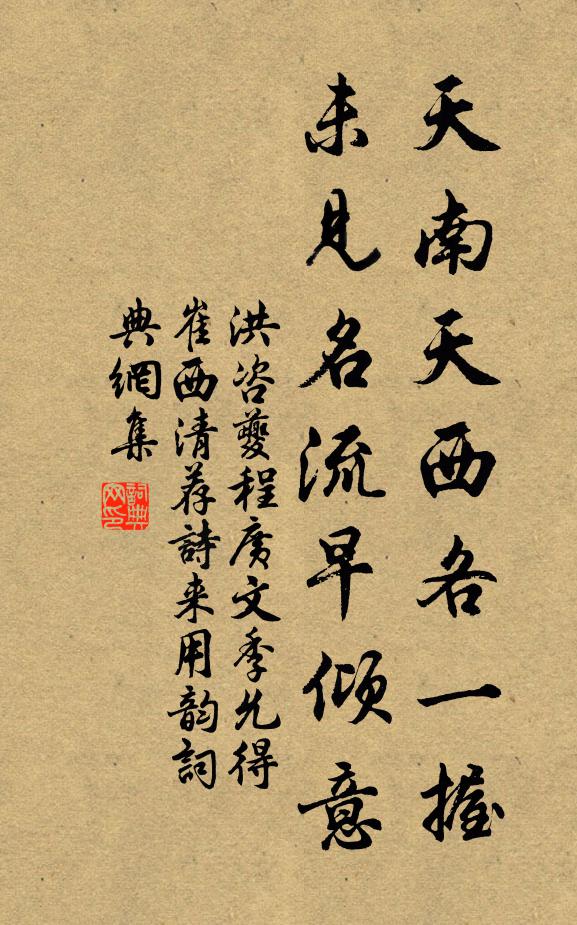 天南天西各一握
未見名流早傾意
洪咨夔程廣文季允得
崔西清荐詩来用韵詞
典網集
詞典
网印